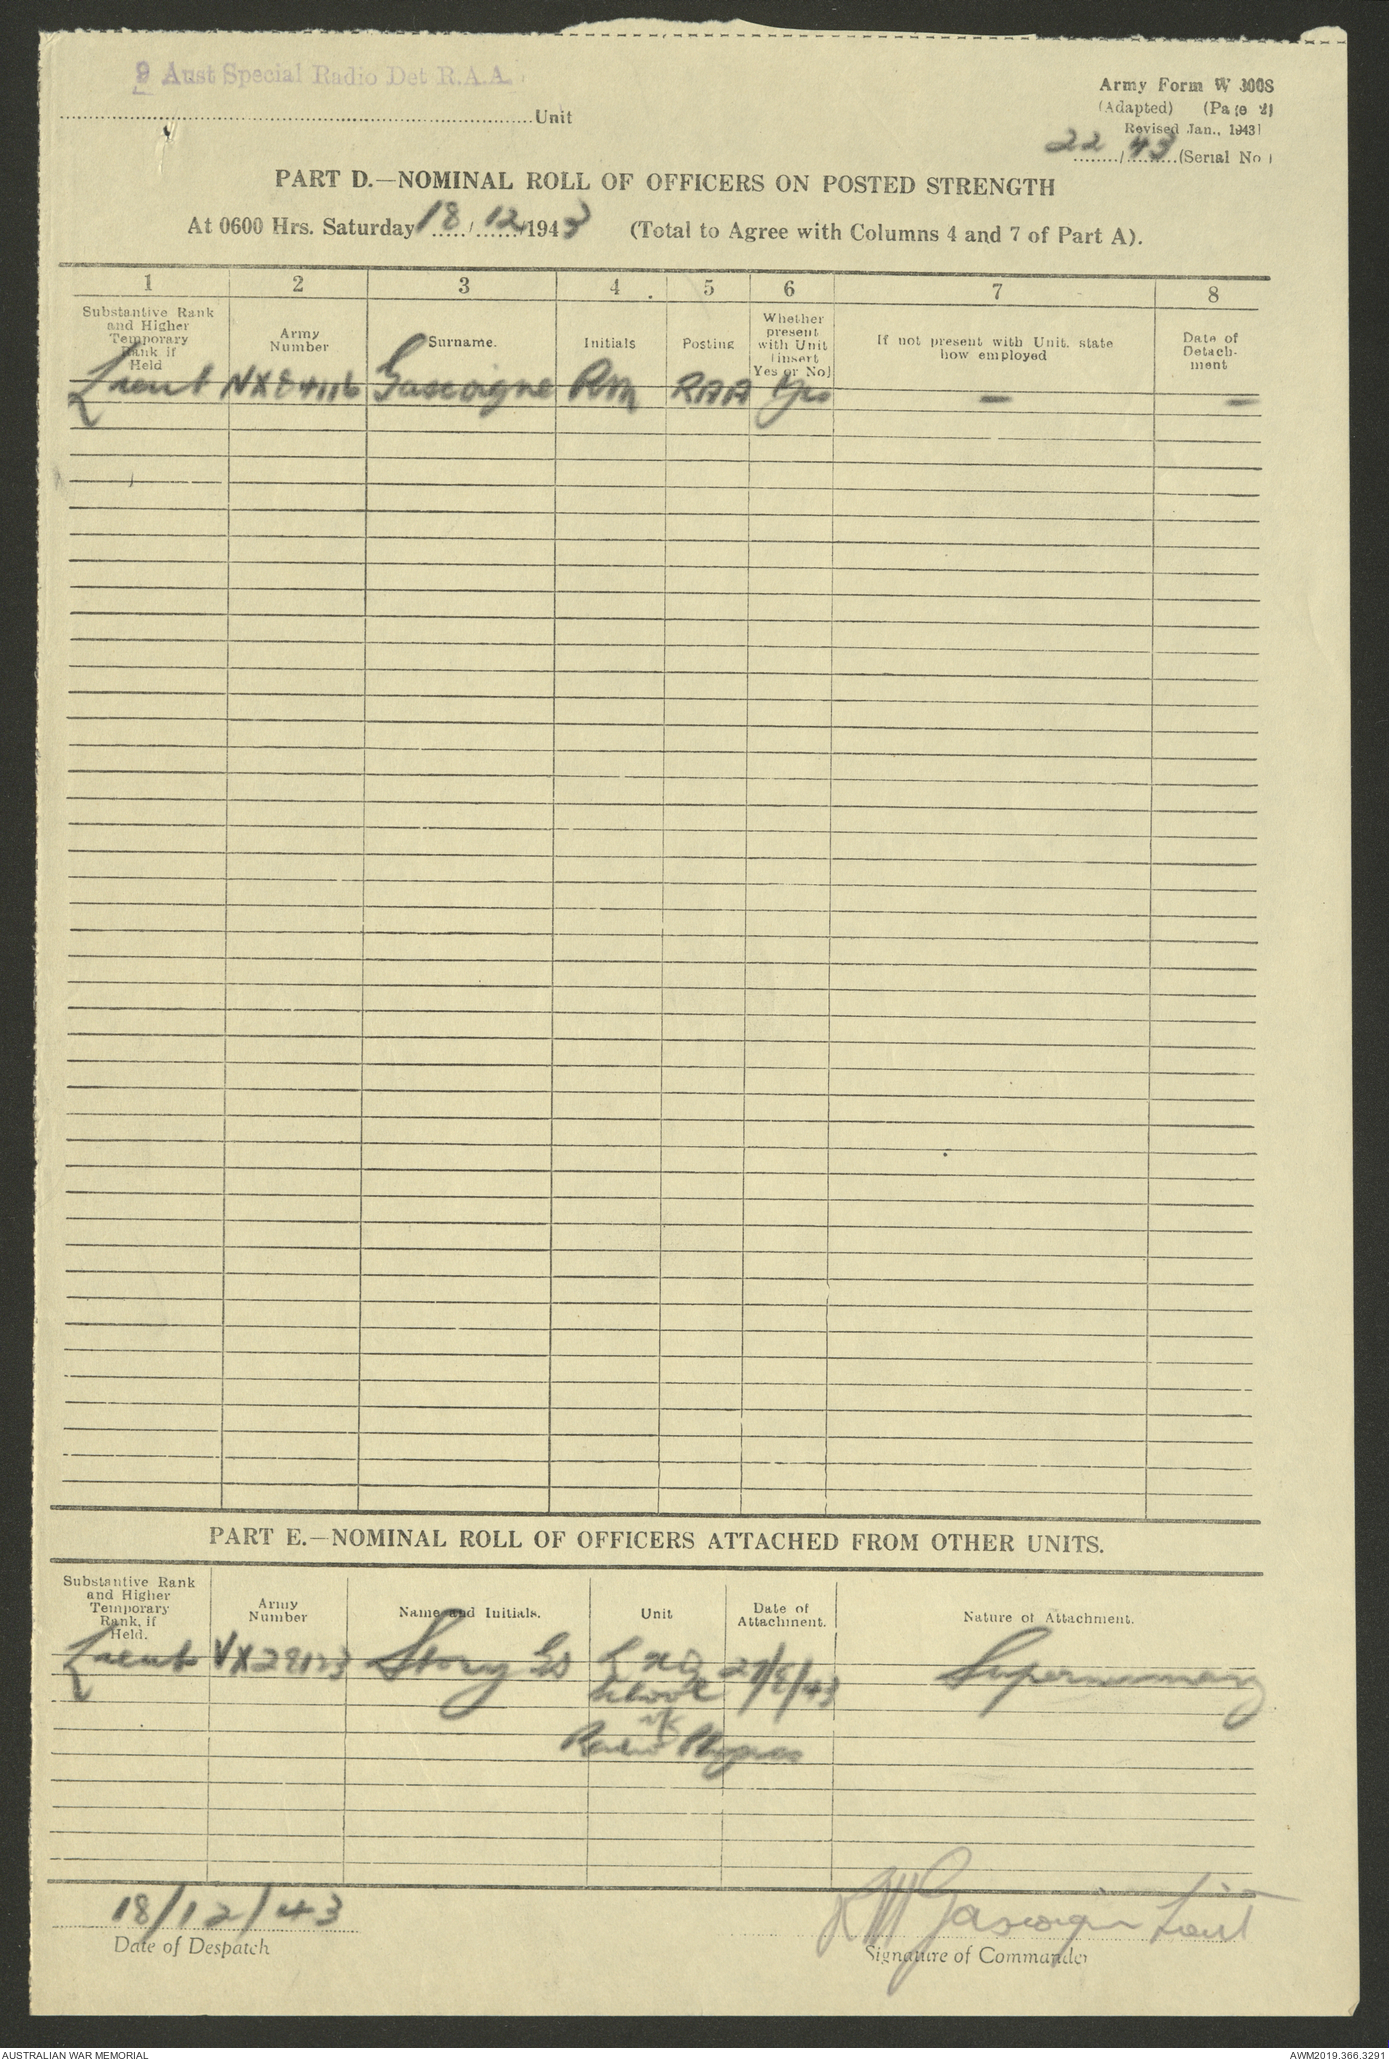 9 Aust Special Radio Det R.A.A.
Unit
Army Form W 3008
(Adapted) (Page 2)
Revised Jan., 1943
22/43 (Serial No.)
PART D.—NOMINAL ROLL OF OFFICERS ON POSTED STRENGTH
At 0600 Hrs. Saturday 18/12/1943 (Total to Agree with Columns 4 and 7 of Part A).
1 2 3 4 5 6 7 8
Substantive Rank and Higher Temporary Rank if Held
Army Number
Surname.
Initials
Posting
Whether present with Unit (insert Yes or No)
If not present with Unit, state how employed
Date of Detach-ment
Lieut NX84116 Gascoigne RM RAA Yes — —
PART E.—NOMINAL ROLL OF OFFICERS ATTACHED FROM OTHER UNITS.
Substantive Rank and Higher Temporary Rank, if Held.
Army Number
Name and Initials.
Unit
Date of Attachment.
Nature of Attachment.
Lieut Story School Supernumary
Radio Physics
18/12/43
Date of Despatch
RM Gascoigne Lieut
Signature of Commander
AUSTRALIAN WAR MEMORIAL
AWM2019.366.3291